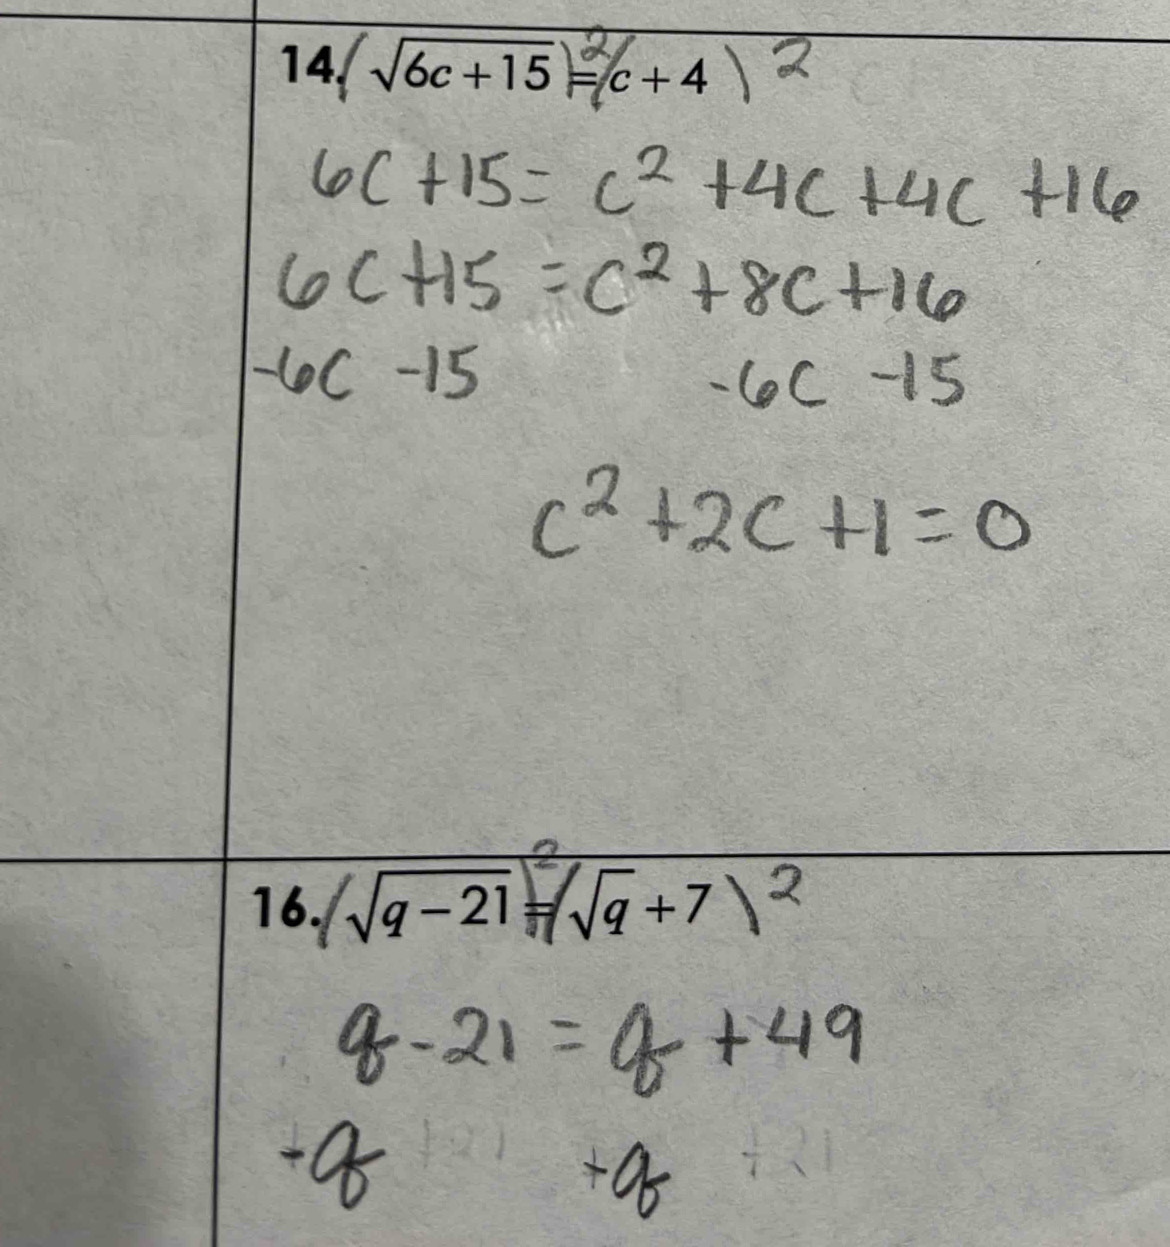 14. (√6c + 15)² = (c + 4)²
6C + 15 = C² + 4C + 4C + 16
6C + 15 = C² + 8C + 16
-6C -15 -6C -15
C² + 2C + 1 = 0
16. (√q − 21)² = (√q + 7)²
q - 21 = q + 49
-q +21 +q +21